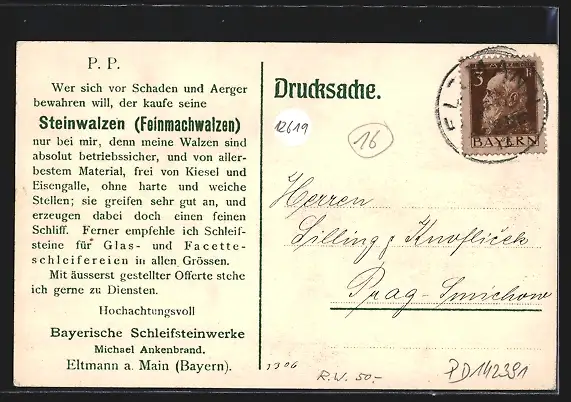 P. P.
Wer sich vor Schaden und Aerger
bewahren will, der kaufe seine
Steinwalzen (Feinmachwalzen)
nur bei mir, denn meine Walzen sind
absolut betriebssicher, und von aller-
bestem Material, frei von Kiesel und
Eisengalle, ohne harte und weiche
Stellen; sie greifen sehr gut an, und
erzeugen dabei doch einen feinen
Schliff. Ferner empfehle ich Schleif-
steine für Glas- und Facette-
schleifereien in allen Grössen.
Mit äusserst gestellter Offerte stehe
ich gerne zu Diensten.
Hochachtungsvoll
Bayerische Schleifsteinwerke
Michael Ankenbrand.
Eltmann a. Main (Bayern).
Drucksache.
12619
16
3
BAYERN
ELT
Herren
Lilling & Knoflíček
Prag-Smichow
1306
R.W. 50.-
PD142391